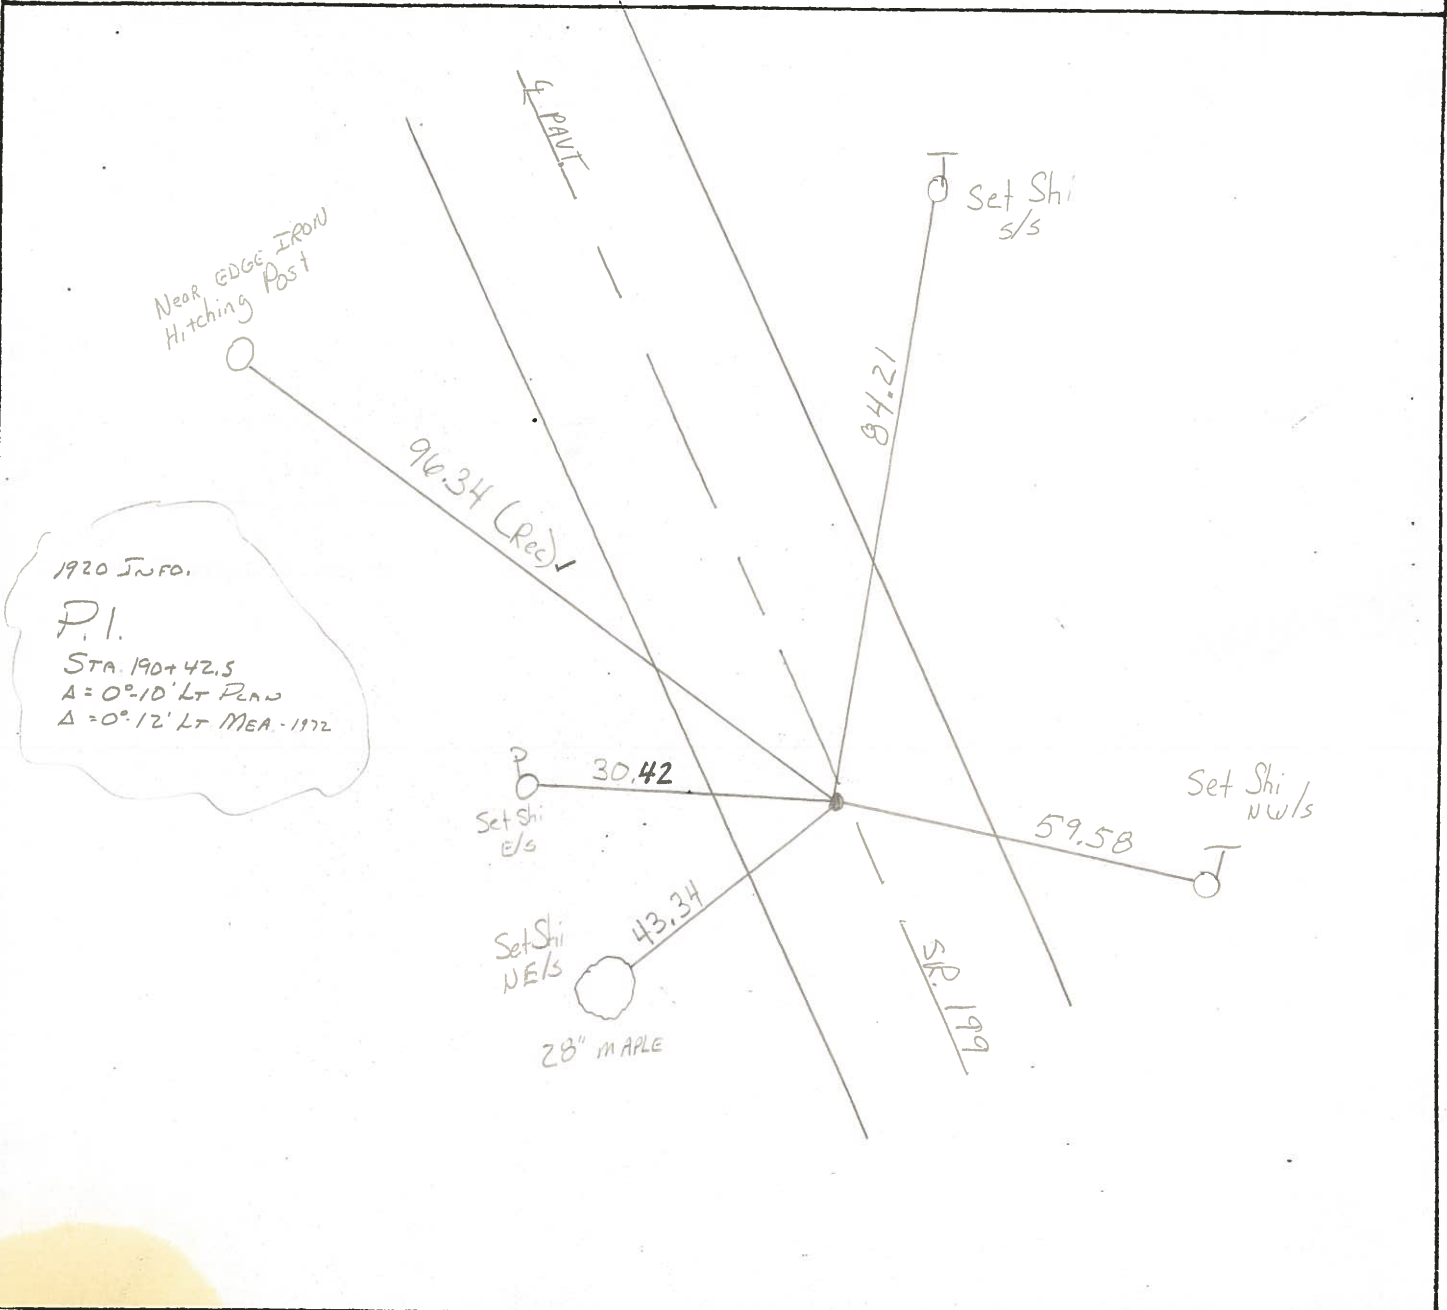 ℄ PAVT.
T
Set Shi
S/S
Near EDGE IRON
Hitching Post
84.21
96.34 (Rec) ✓
1920 INFO.
P.I.
STA. 190+42.5
Δ = 0°-10' LT PLAN
Δ = 0°-12' LT MEA - 1972
P
30.42
Set Shi
E/S
Set Shi
NW/S
59.58
T
43.34
Set Shi
NE/S
28" MAPLE
SR. 199